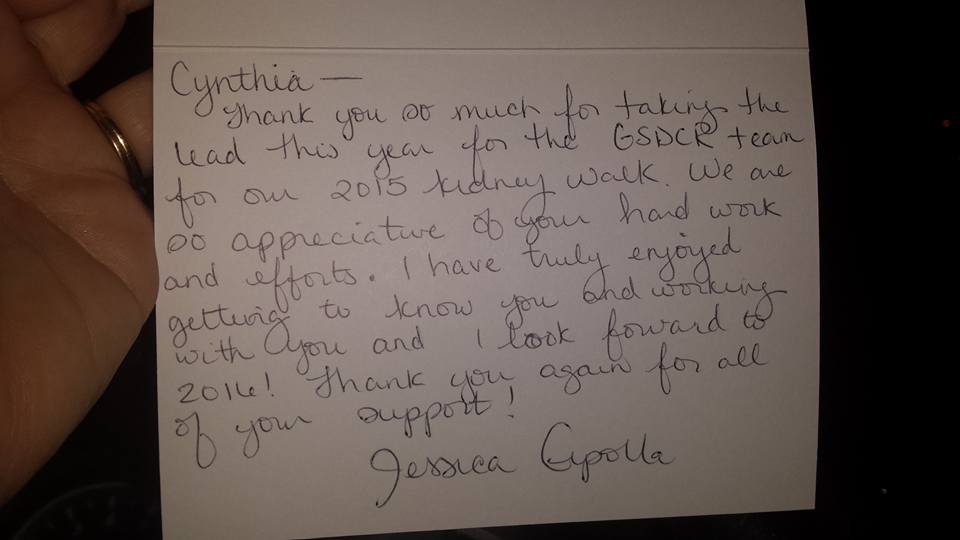 Cynthia —
Thank you so much for taking the
lead this year for the GSDCR team
for our 2015 kidney walk. We are
so appreciative of your hard work
and efforts. I have truly enjoyed
getting to know you and working
with you and I look forward to
2016! Thank you again for all
of your support!
Jessica